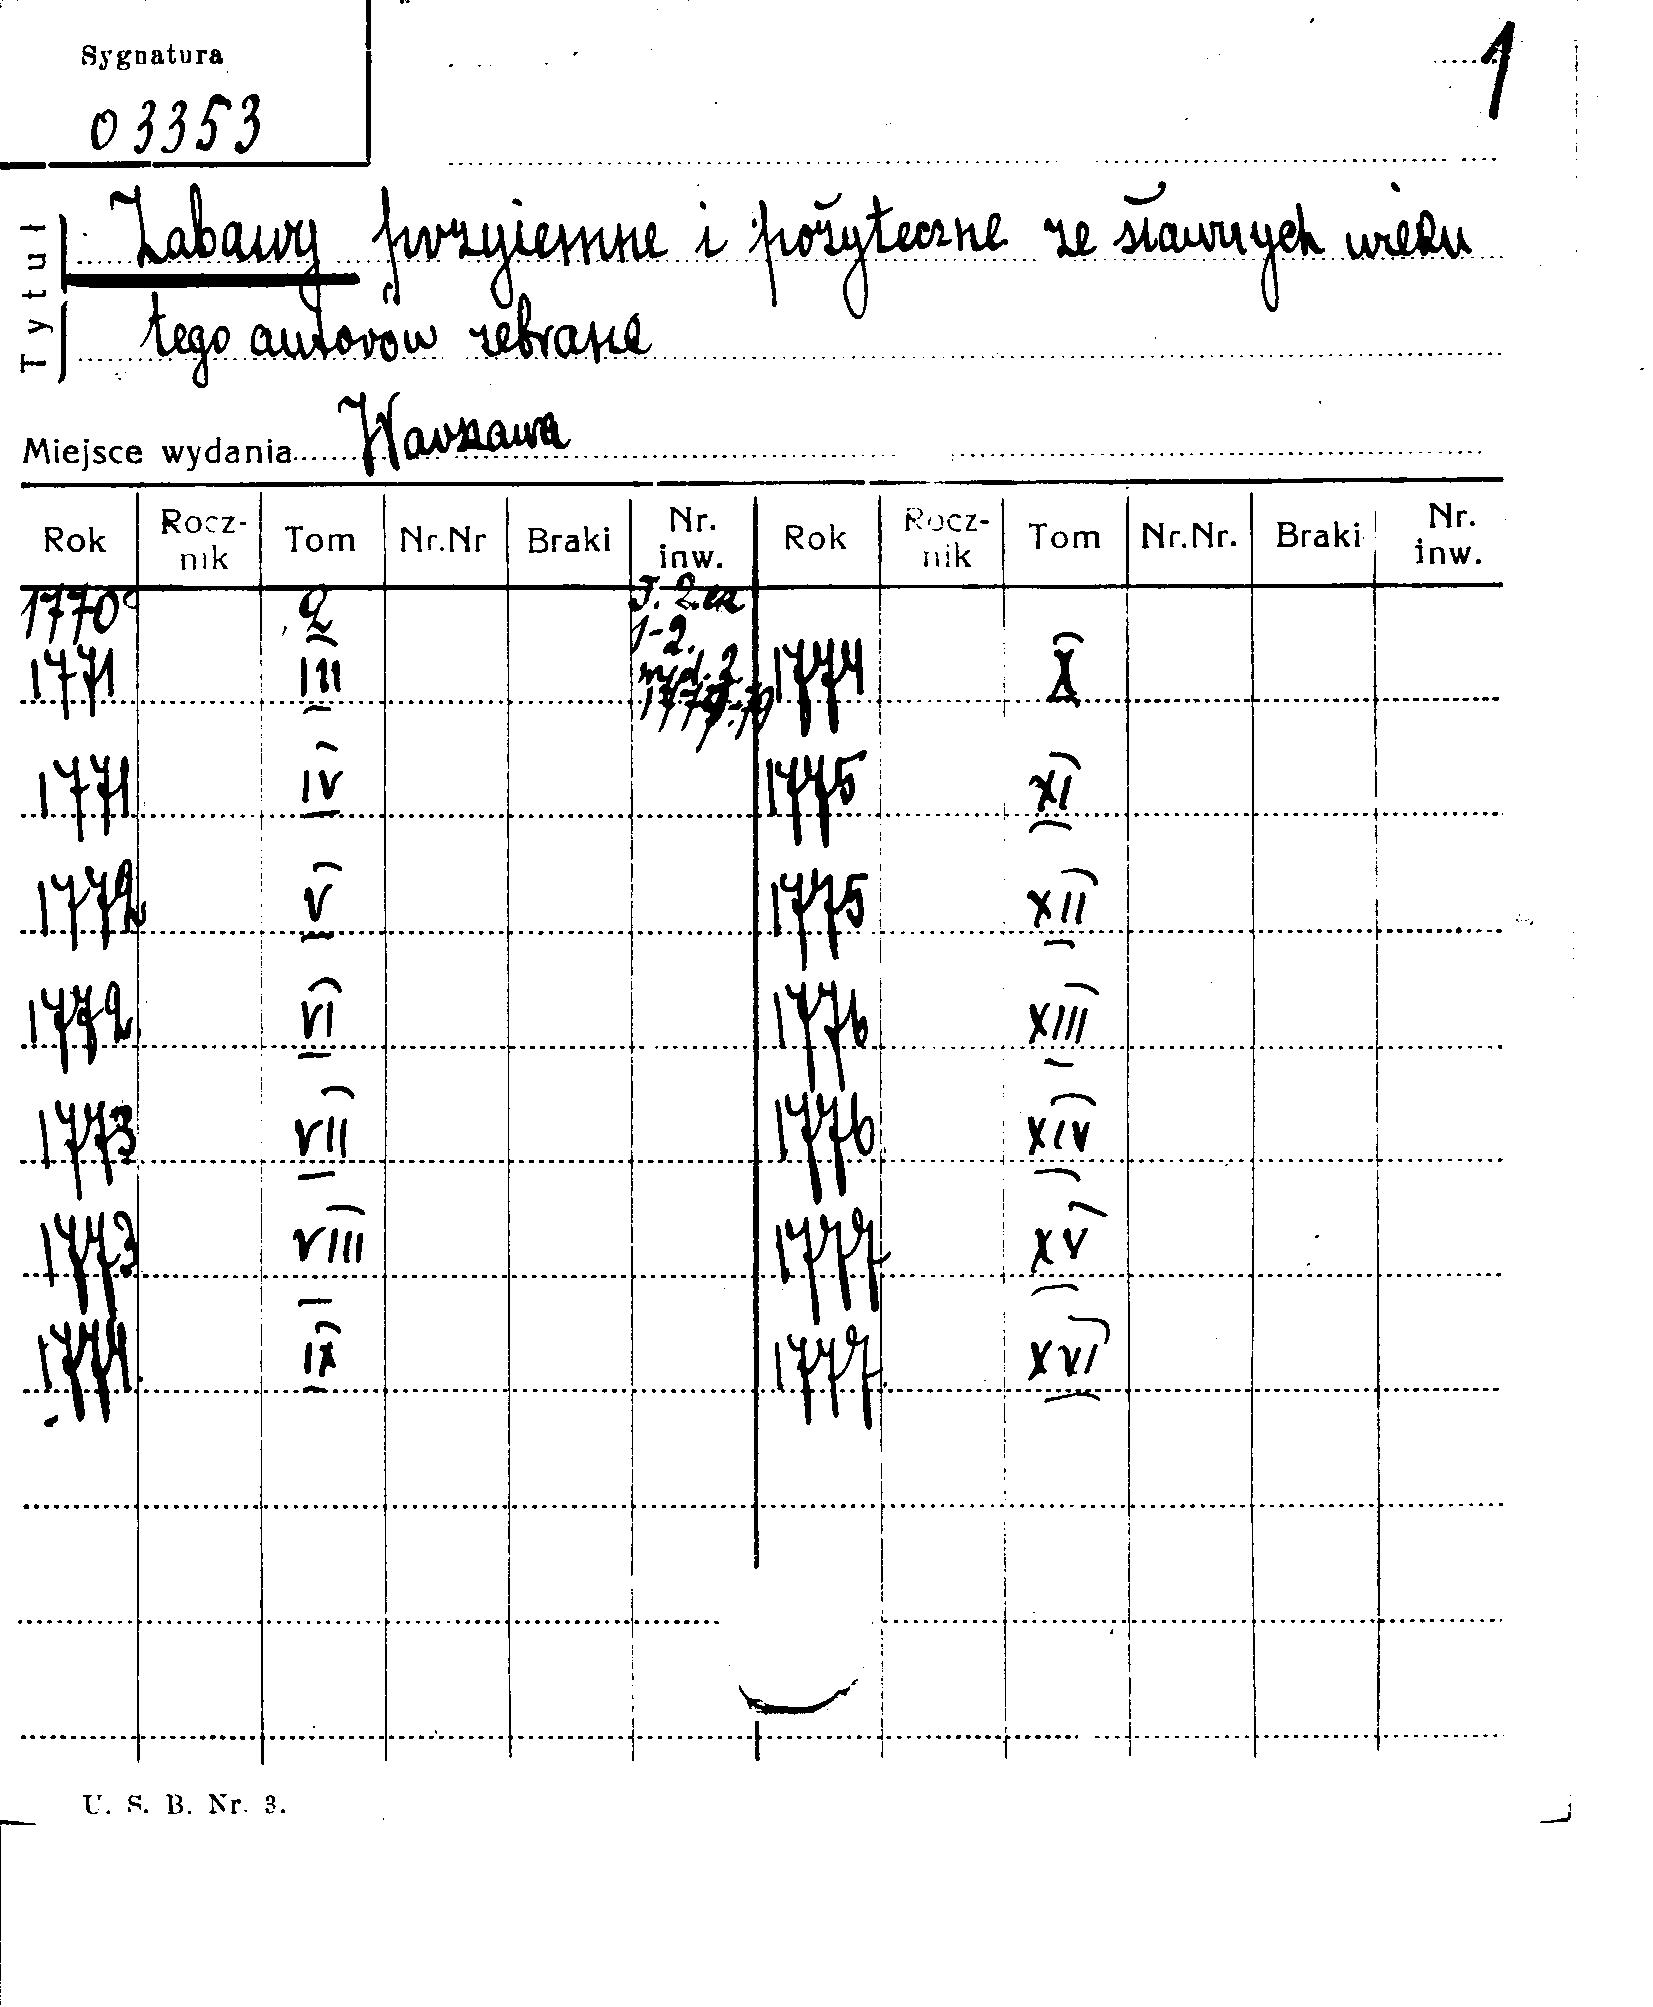 Sygnatura
1
03353
Tytuł
Zabawy przyiemne i pożyteczne ze sławnych wieku
tego autorów zebrane
Miejsce wydania Warszawa
Rok Rocz-nik Tom Nr.Nr Braki Nr. inw. Rok Rocz-nik Tom Nr.Nr. Braki Nr. inw.
1770 2 T. 2.
1-2.
1771 III wyd. 2 1774 X
1771 IV 1775 XI
1772 V 1775 XII
1772 VI 1776 XIII
1773 VII 1776 XIV
1773 VIII 1777 XV
1774 IX 1777 XVI
U. S. B. Nr. 3.